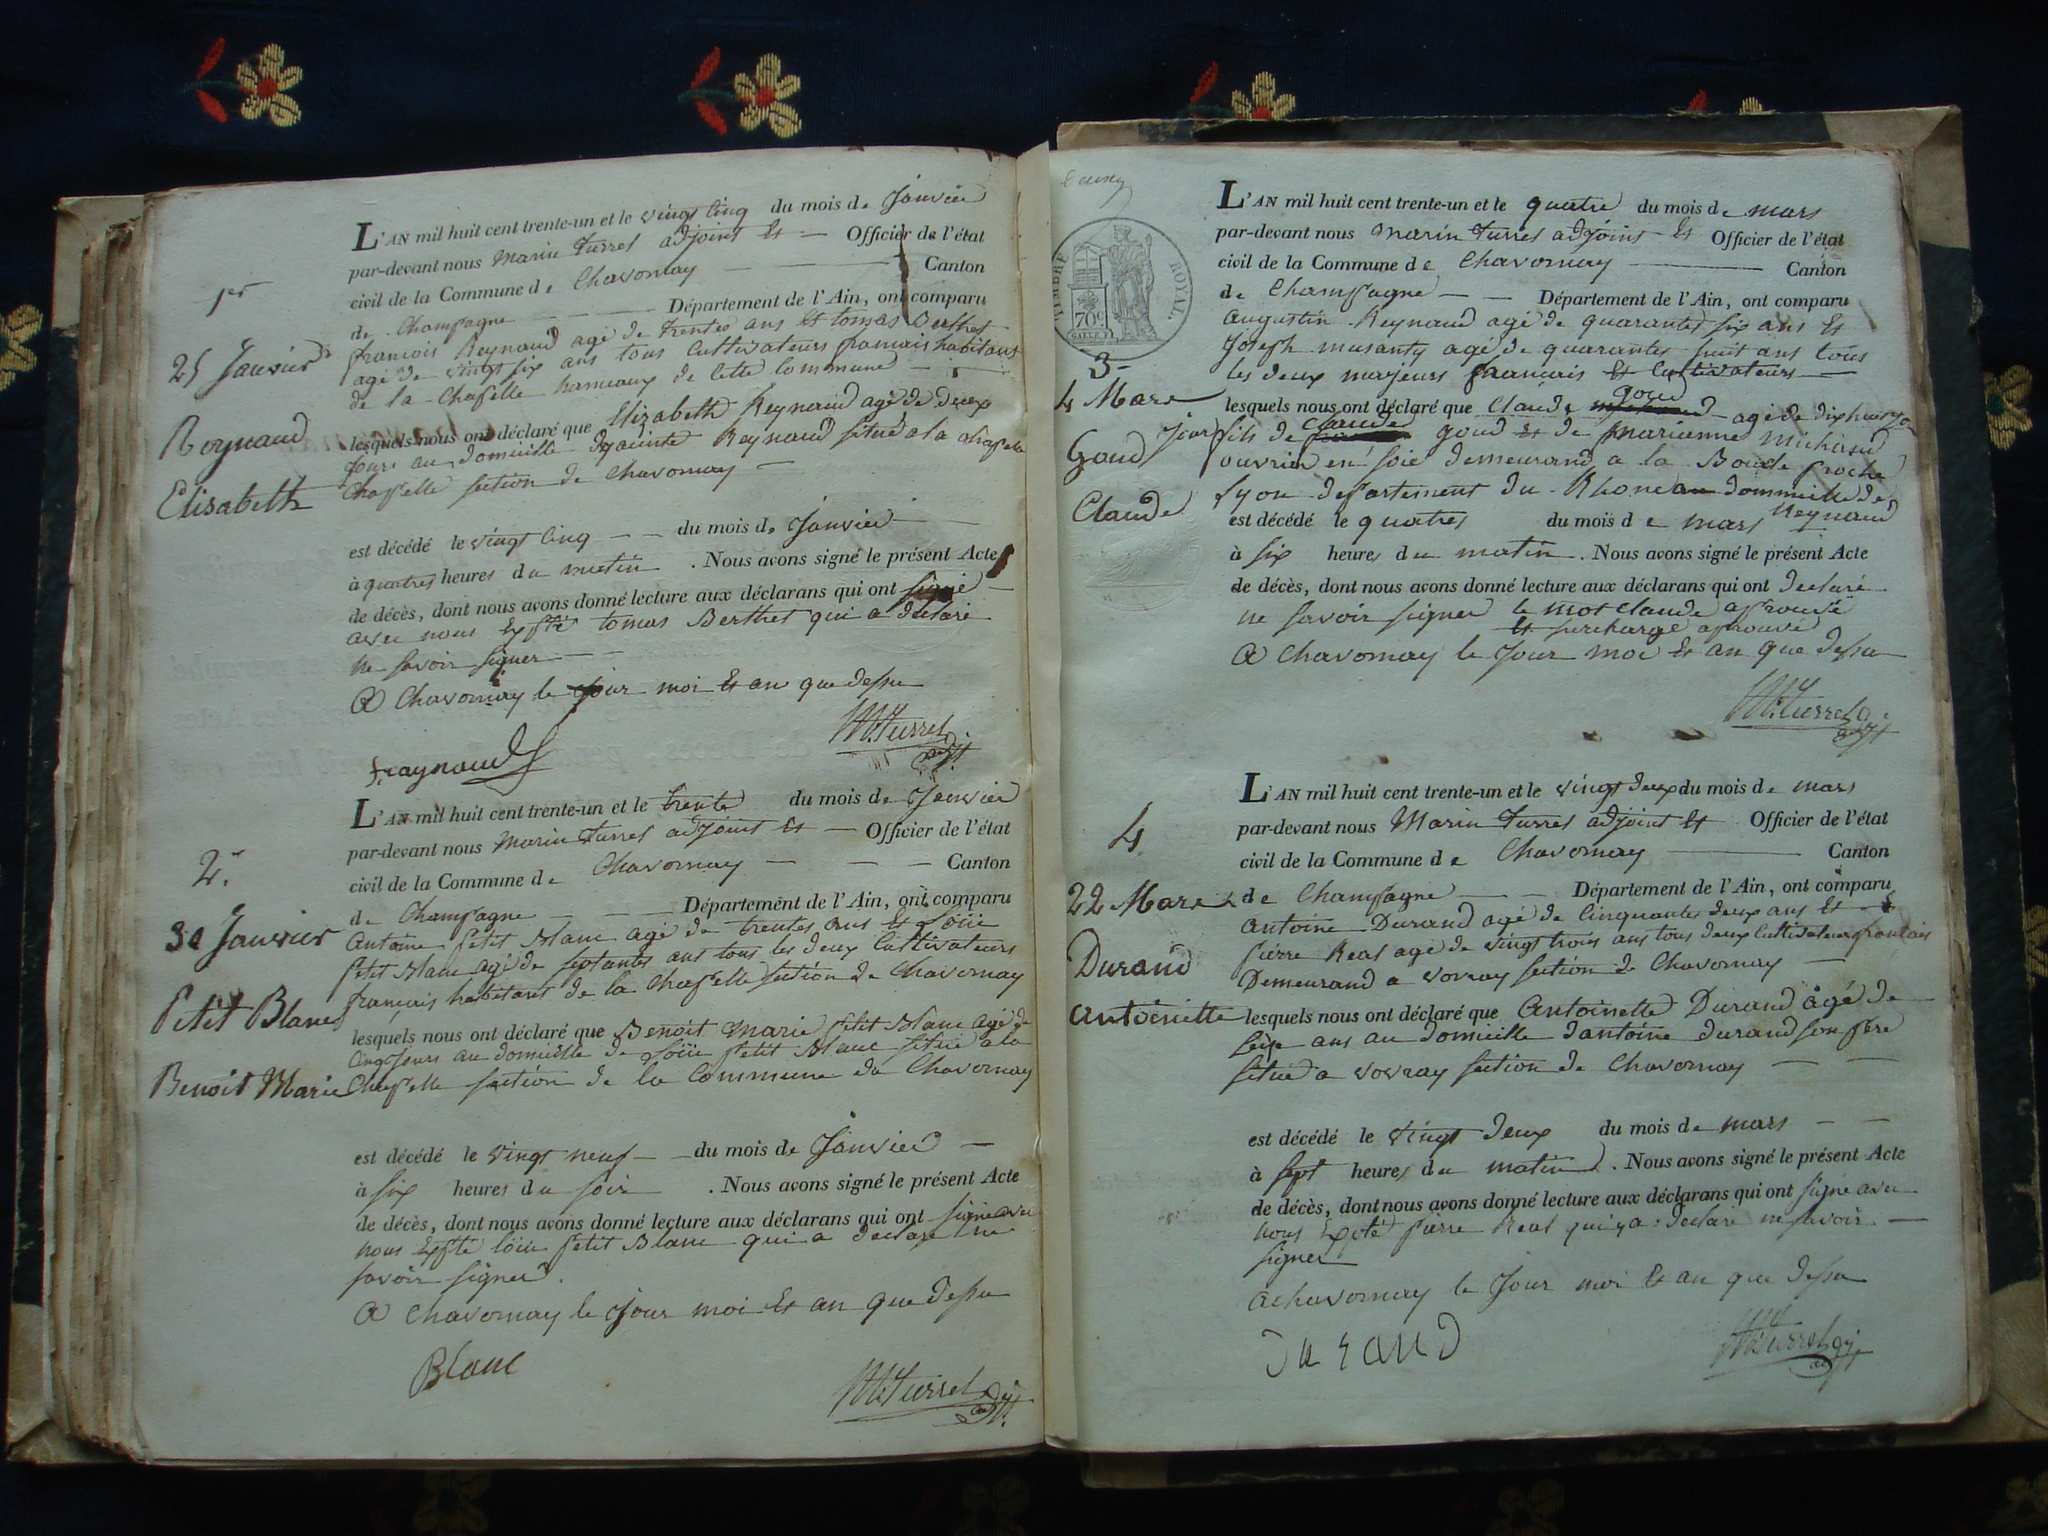 1er
25 Janvier
Reynaud
Elisabeth
L'AN mil huit cent trente-un et le vingt cinq du mois de Janvier
par-devant nous Marin Turrel adjoint et Officier de l'état
civil de la Commune de Chavornay Canton
de Champagne Département de l'Ain, ont comparu
francois Reynaud agé de trentes ans et tomas Berthet
agé de vingt six ans tous cultivateurs francais habitans
de la Chapelle hameaux de cette commune
lesquels nous ont déclaré que Elizabeth Reynaud agé de deux
jours au domicille Reynaud situé a la
Chapelle section de Chavornay
est décédé le vingt cinq du mois de Janvier
à quatres heures du matin . Nous avons signé le présent Acte
de décès, dont nous avons donné lecture aux déclarans qui ont signé
avec nous Expté tomas Berthet qui a declaré
ne savoir signer
A Chavornay le jour moi et an que dessu
freynaud
M. Turrel adjt.
2.
30 Janvier
Petit Blanc
Benoit Marie
L'AN mil huit cent trente-un et le trente du mois de Janvier
par-devant nous Marin Turrel adjoint et Officier de l'état
civil de la Commune de Chavornay Canton
de Champagne Département de l'Ain, ont comparu
Antoine petit Blanc agé de trentes ans et Loüie
petit Blanc agé de septantes ans tous les deux cultivateurs
français habitans de la Chapelle section de Chavornay
lesquels nous ont déclaré que Benoit Marie petit Blanc agé de
cinq jours au domicille de Loüie petit Blanc situé a la
Chapelle section de la Commune de Chavornay
est décédé le vingt neuf du mois de Janvier
à six heures du soir . Nous avons signé le présent Acte
de décès, dont nous avons donné lecture aux déclarans qui ont signé avec
nous Expté loüie petit Blanc qui a declaré ne
savoir signer.
A Chavornay le jour moi et an que dessu
Blanc
M. Turrel adjt.
TIMBRE ROYAL
70c
3
4 Mars
Goud
Claude
L'AN mil huit cent trente-un et le quatre du mois de mars
par-devant nous marin turrel adjoint et Officier de l'état
civil de la Commune de Chavornay Canton
de Champagne Département de l'Ain, ont comparu
augustin Reynaud agé de quarantes six ans et
Joseph musanty agé de quarantes huit ans tous
les deux majeurs francais et cultivateurs
goud
lesquels nous ont déclaré que Claude agé de dix huit
Claude
jour fils de goud et de marienne michaud
ouvrier en soie demeurand a la proche
lyon departement du Rhone au dommicille de
Reynaud
est décédé le quatres du mois de mars
à six heures du matin . Nous avons signé le présent Acte
de décès, dont nous avons donné lecture aux déclarans qui ont declaré
ne savoir signer le mot claude aprouvé
et surcharge aprouvé
A Chavornay le jour moi et an que dessu
M. Turrel adjt
4
22 Mars
Durand
antoinette
L'AN mil huit cent trente-un et le vingt deux du mois de mars
par-devant nous Marin turrel adjoint et Officier de l'état
civil de la Commune de Chavornay Canton
de Champagne Département de l'Ain, ont comparu
antoine Durand agé de cinquantes deux ans et
pierre Real agé de vingt trois ans tous deux cultivateur francais
Demeurand a vovray section de Chavornay
lesquels nous ont déclaré que Antoinette Durand âgé de
seize ans au domicille d'antoine durand son père
situé a vovray section de Chavornay
est décédé le vingt deux du mois de mars
à sept heures du matin . Nous avons signé le présent Acte
de décès, dont nous avons donné lecture aux déclarans qui ont signé avec
nous Expté pierre Real qui ya declaré ne savoir
signer
a chavornay le jour moi et an que dessu
Durand
M. Turrel adjt